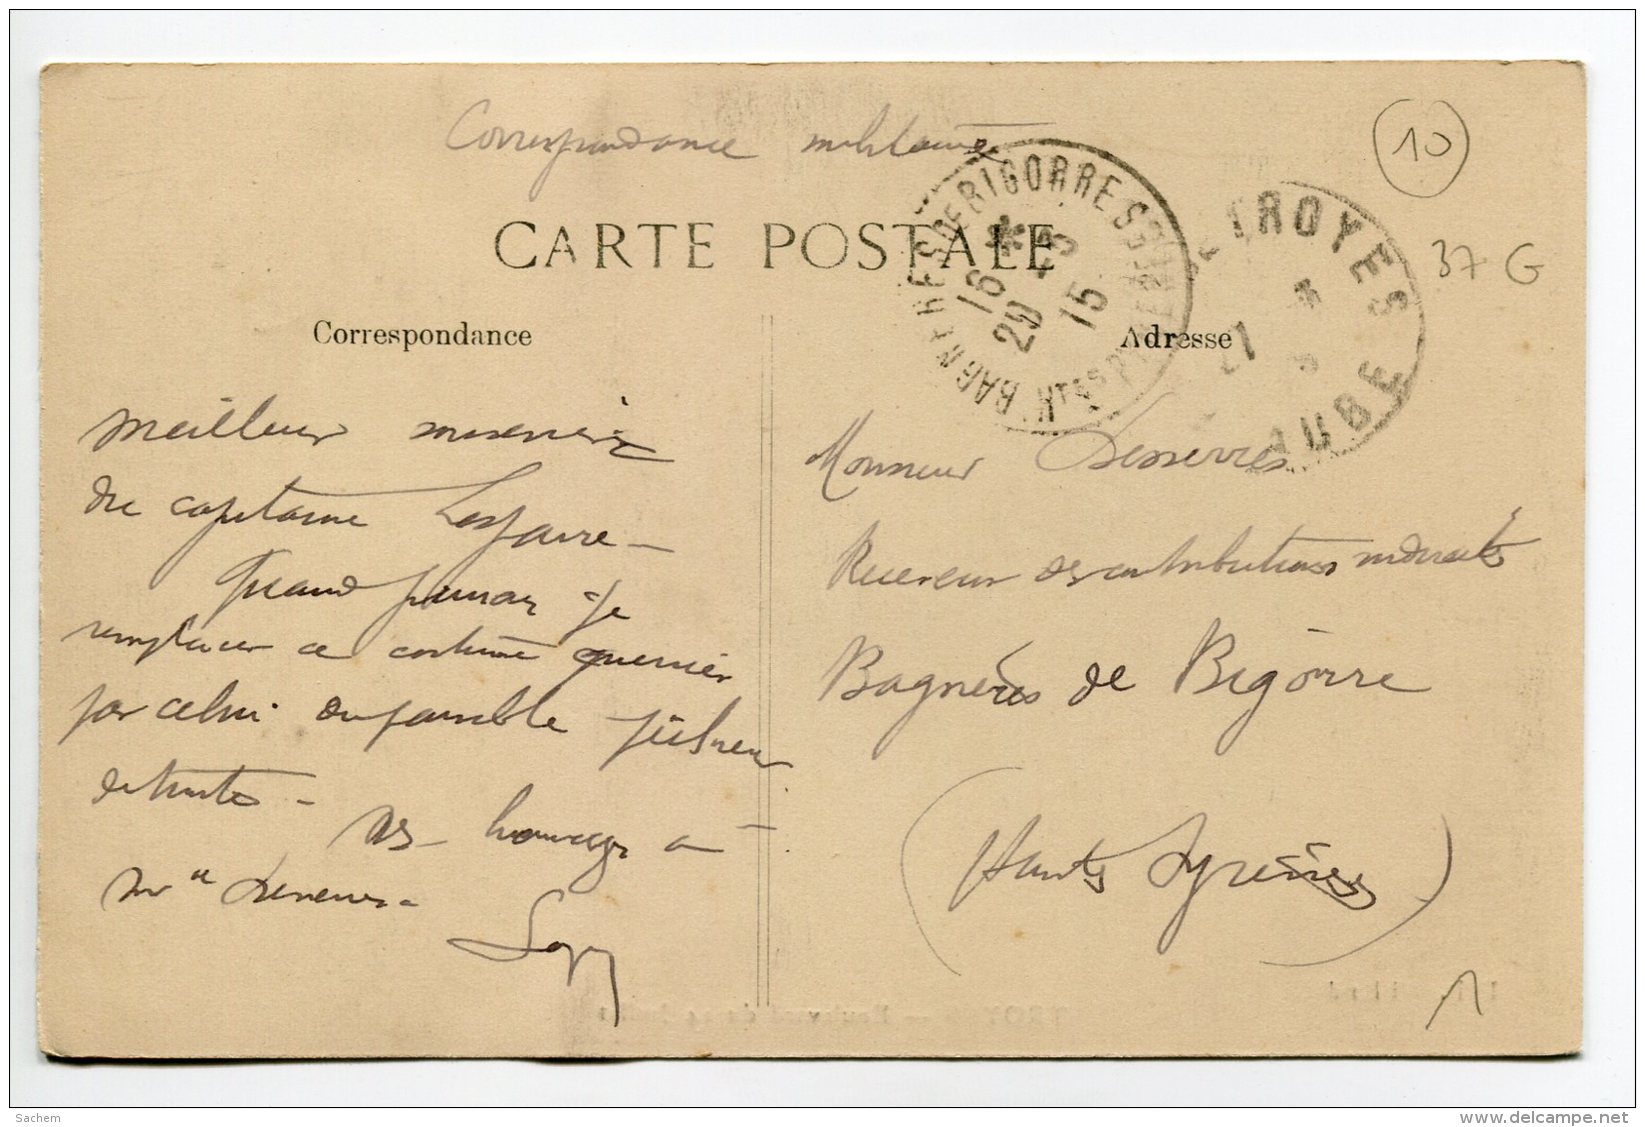 Correspondance militaire
10
CARTE POSTALE
BAGNERES DE BIGORRE
HTES PYRENEES
16 * 29 - 3 15
TROYES
AUBE
37 G
Correspondance
Adresse
meilleur souvenir
du capitaine
Quand pourrai-je
remplacer ce costume guerrier
par celui du paisible pêcheur
de truites -
mes hommages à
Mme Desserres -
Monsieur Desserres
Receveur des contributions indirectes
Bagnères de Bigorre
(Hautes Pyrénées)
TROYES - Boulevard
Sachem
www.delcampe.net